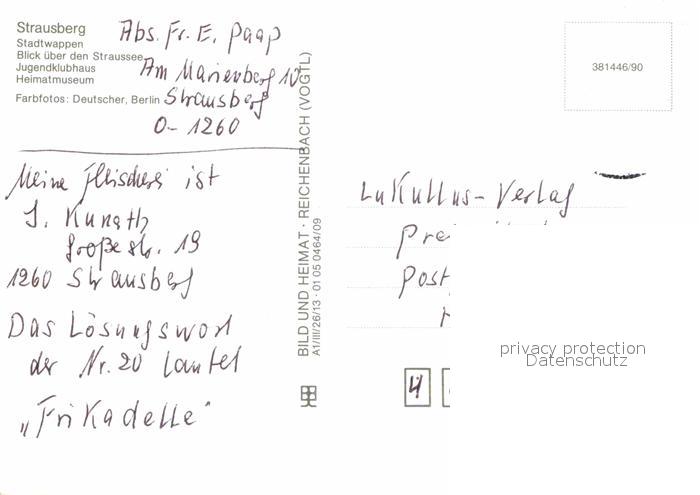 Strausberg
Stadtwappen
Blick über den Straussee
Jugendklubhaus
Heimatmuseum
Farbfotos: Deutscher, Berlin
Abs. Fr. E. Paap
Am Marienberg 10
Strausberg
O- 1260
Meine Fleischerei ist
J. Kunath
Großestr. 19
1260 Strausberg
Das Lösungswort
der Nr. 20 lautet
„Frikadelle"
BILD UND HEIMAT · REICHENBACH (VOGTL)
A1/III/26/13 · 01 05 0464/09
381446/90
Lukullus-Verlag
Pre
Post
4
privacy protection
Datenschutz